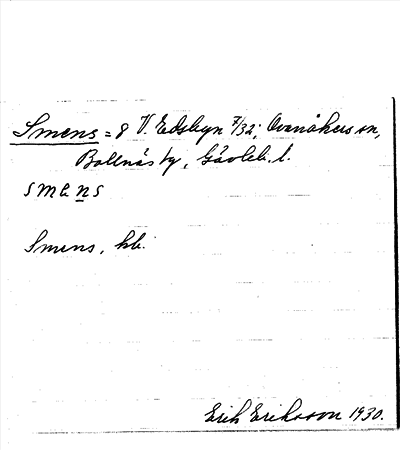 Smens = 8 V. Edsbyn 7/32; Ovanåkers sn,
Bollnäs tg, Gävleb. l.
smens
Smens, hb.
Erik Eriksson 1930.